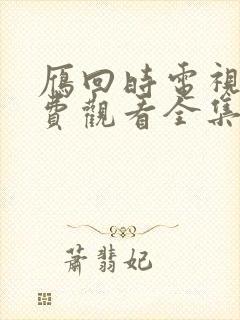 雁回時電視
費觀看全集
蕭翡妃